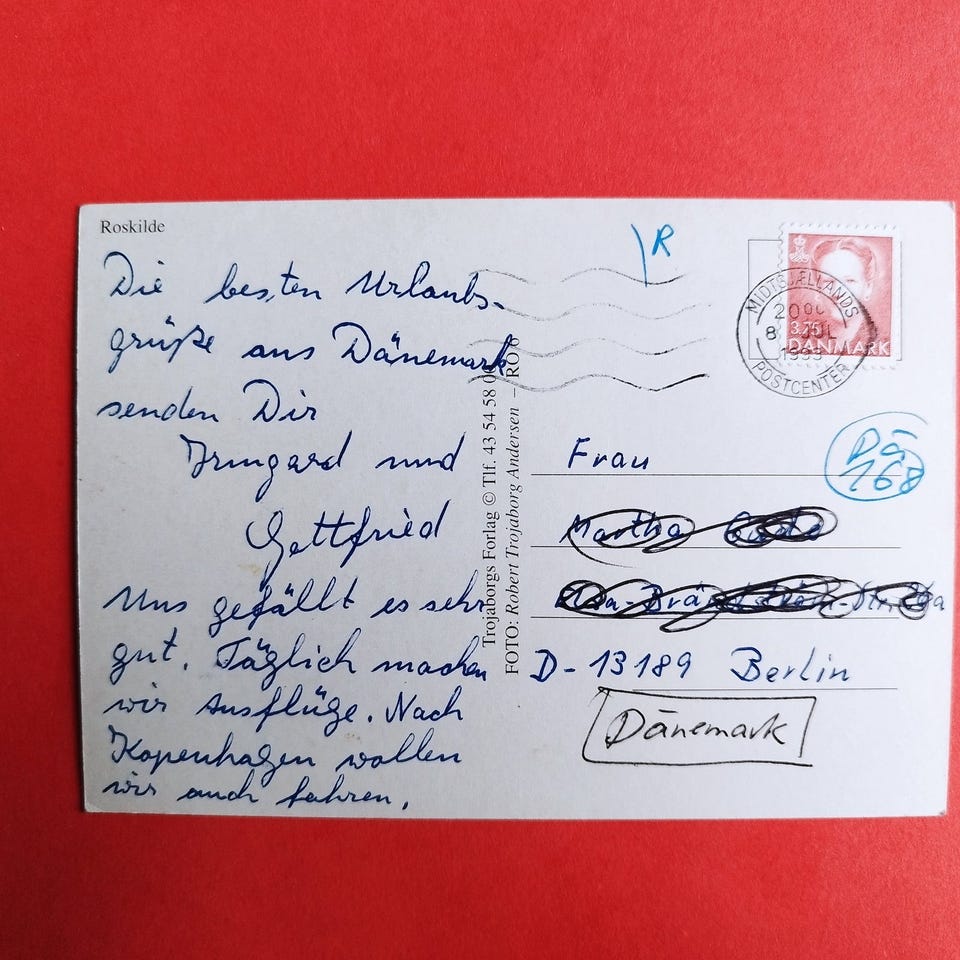 Roskilde
Die besten Urlaubs-
grüße aus Dänemark
senden Dir
Irmgard und
Gottfried
Uns gefällt es sehr
gut. Täglich machen
wir Ausflüge. Nach
Kopenhagen wollen
wir auch fahren.
Trojaborgs Forlag © Tlf. 43 54 58
FOTO: Robert Trojaborg Andersen – RO 6
R
MIDTSJÆLLANDS
20
8 JUL
POSTCENTER
3.75
DANMARK
Dä
168
Frau
D-13189 Berlin
Dänemark